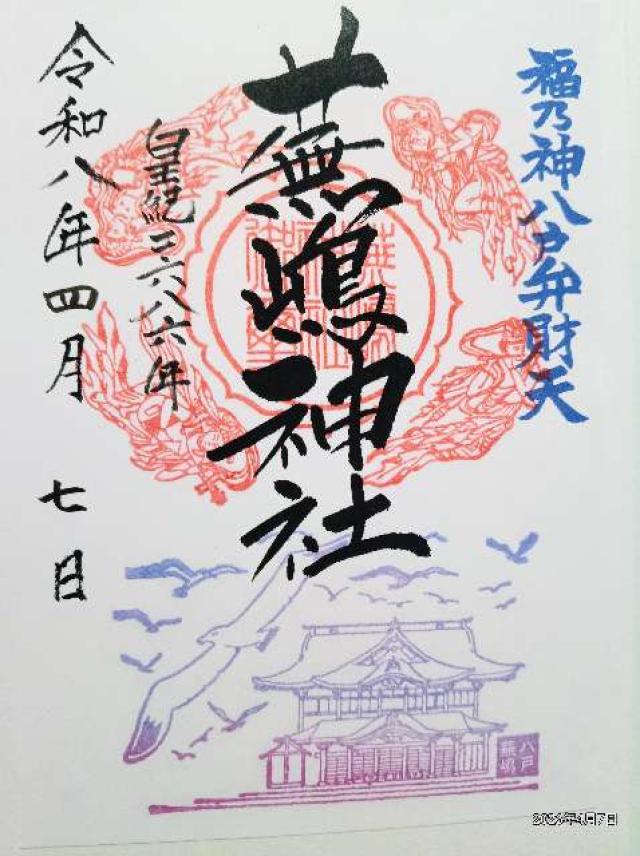 福乃神八戸弁財天
蕪嶋神社
皇紀二六八六年
令和八年四月七日
八戸
蕪嶋
2026年4月7日